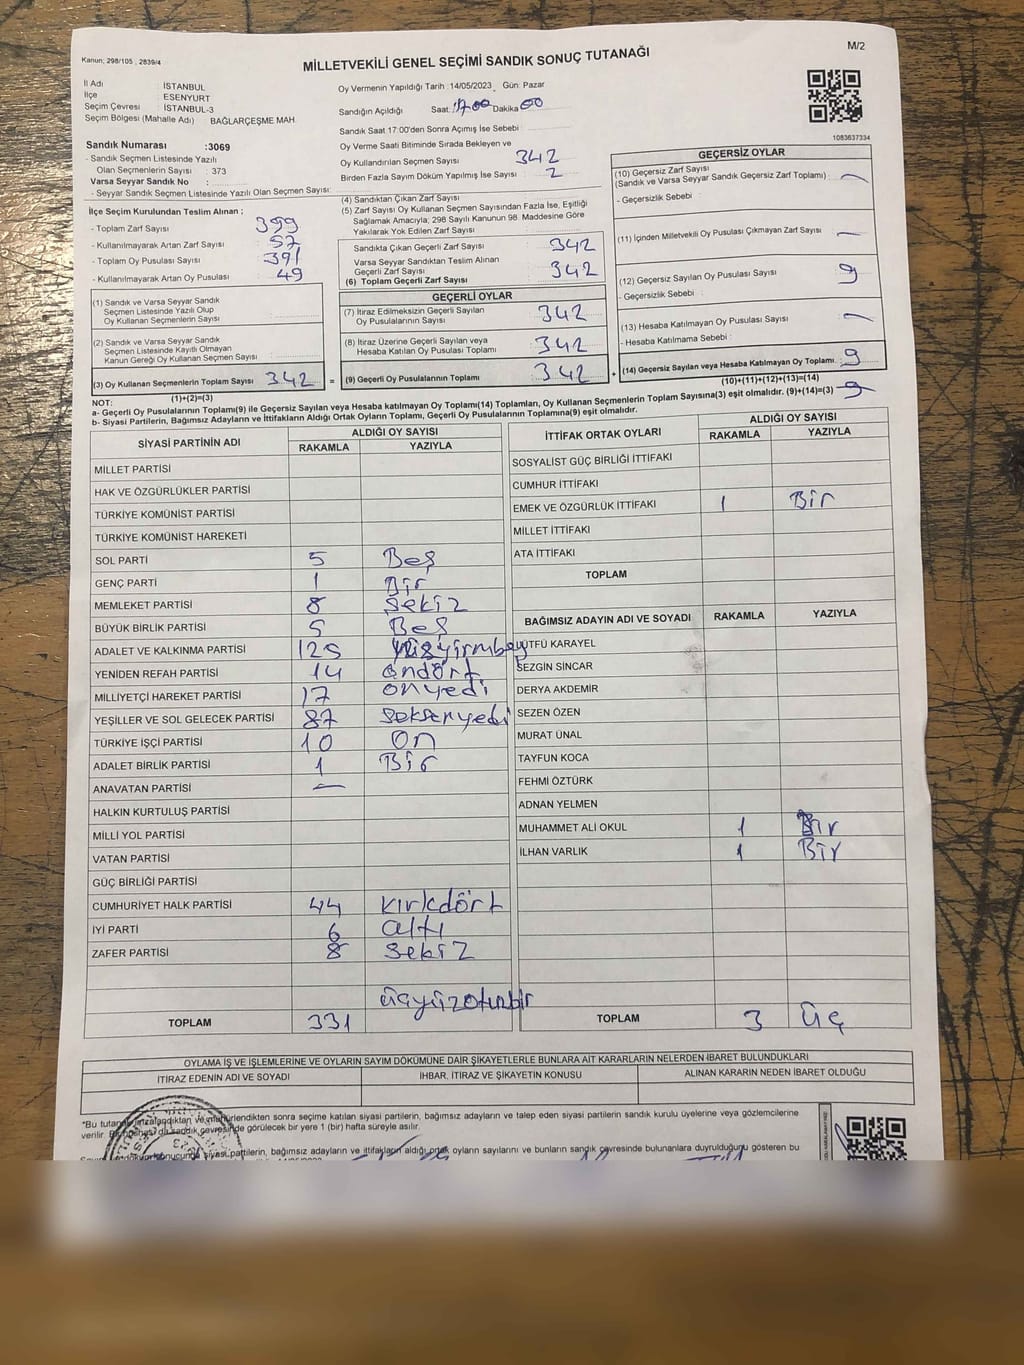 Kanun; 298/105 , 2839/4
MİLLETVEKİLİ GENEL SEÇİMİ SANDIK SONUÇ TUTANAĞI
M/2
İl Adı : İSTANBUL
İlçe : ESENYURT
Seçim Çevresi : İSTANBUL-3
Seçim Bölgesi (Mahalle Adı) BAĞLARÇEŞME MAH.
Sandık Numarası :3069
- Sandık Seçmen Listesinde Yazılı
Olan Seçmenlerin Sayısı : 373
Varsa Seyyar Sandık No :
- Seyyar Sandık Seçmen Listesinde Yazılı Olan Seçmen Sayısı:
Oy Vermenin Yapıldığı Tarih :14/05/2023 , Gün: Pazar
Sandığın Açıldığı Saat: 17.00 Dakika 00
Sandık Saat 17:00'den Sonra Açımış İse Sebebi
Oy Verme Saati Bitiminde Sırada Bekleyen ve
Oy Kullandırılan Seçmen Sayısı 342
Birden Fazla Sayım Döküm Yapılmış İse Sayısı : 2
1083637334
İlçe Seçim Kurulundan Teslim Alınan ;
- Toplam Zarf Sayısı : 399
- Kullanılmayarak Artan Zarf Sayısı : 57
- Toplam Oy Pusulası Sayısı : 391
- Kullanılmayarak Artan Oy Pusulası : 49
(1) Sandık ve Varsa Seyyar Sandık
Seçmen Listesinde Yazılı Olup
Oy Kullanan Seçmenlerin Sayısı :
(2) Sandık ve Varsa Seyyar Sandık
Seçmen Listesinde Kayıtlı Olmayan
Kanun Gereği Oy Kullanan Seçmen Sayısı :
(3) Oy Kullanan Seçmenlerin Toplam Sayısı : 342 =
(1)+(2)=(3)
(4) Sandıktan Çıkan Zarf Sayısı
(5) Zarf Sayısı Oy Kullanan Seçmen Sayısından Fazla İse, Eşitliği
Sağlamak Amacıyla; 298 Sayılı Kanunun 98. Maddesine Göre
Yakılarak Yok Edilen Zarf Sayısı :
Sandıkta Çıkan Geçerli Zarf Sayısı : 342
Varsa Seyyar Sandıktan Teslim Alınan
Geçerli Zarf Sayısı : 342
(6) Toplam Geçerli Zarf Sayısı
GEÇERLİ OYLAR
(7) İtiraz Edilmeksizin Geçerli Sayılan
Oy Pusulalarının Sayısı : 342
(8) İtiraz Üzerine Geçerli Sayılan veya
Hesaba Katılan Oy Pusulası Toplamı : 342
(9) Geçerli Oy Pusulalarının Toplamı : 342 +
GEÇERSİZ OYLAR
(10) Geçersiz Zarf Sayısı
(Sandık ve Varsa Seyyar Sandık Geçersiz Zarf Toplamı) : —
- Geçersizlik Sebebi :
(11) İçinden Milletvekili Oy Pusulası Çıkmayan Zarf Sayısı : —
(12) Geçersiz Sayılan Oy Pusulası Sayısı : 9
- Geçersizlik Sebebi :
(13) Hesaba Katılmayan Oy Pusulası Sayısı : —
- Hesaba Katılmama Sebebi :
(14) Geçersiz Sayılan veya Hesaba Katılmayan Oy Toplamı : 9
(10)+(11)+(12)+(13)=(14)
NOT:
a- Geçerli Oy Pusulalarının Toplamı(9) ile Geçersiz Sayılan veya Hesaba katılmayan Oy Toplamı(14) Toplamları, Oy Kullanan Seçmenlerin Toplam Sayısına(3) eşit olmalıdır. (9)+(14)=(3) 9
b- Siyasi Partilerin, Bağımsız Adayların ve İttifakların Aldığı Oy Oyların Toplamı, Geçerli Oy Pusulalarının Toplamına(9) eşit olmalıdır.
SİYASİ PARTİNİN ADI ALDIĞI OY SAYISI
RAKAMLA YAZIYLA
MİLLET PARTİSİ
HAK VE ÖZGÜRLÜKLER PARTİSİ
TÜRKİYE KOMÜNİST PARTİSİ
TÜRKİYE KOMÜNİST HAREKETİ
SOL PARTİ 5 Beş
GENÇ PARTİ 1 Bir
MEMLEKET PARTİSİ 8 Sekiz
BÜYÜK BİRLİK PARTİSİ 5 Beş
ADALET VE KALKINMA PARTİSİ 125
YENİDEN REFAH PARTİSİ 14 ondört
MİLLİYETÇİ HAREKET PARTİSİ 17 onyedi
YEŞİLLER VE SOL GELECEK PARTİSİ 87 Seksenyedi
TÜRKİYE İŞÇİ PARTİSİ 10 On
ADALET BİRLİK PARTİSİ 1 Bir
ANAVATAN PARTİSİ —
HALKIN KURTULUŞ PARTİSİ
MİLLİ YOL PARTİSİ
VATAN PARTİSİ
GÜÇ BİRLİĞİ PARTİSİ
CUMHURİYET HALK PARTİSİ 44 kırkdört
İYİ PARTİ 6 altı
ZAFER PARTİSİ 8 Sekiz
üçyüzotuzbir
TOPLAM 331
İTTİFAK ORTAK OYLARI ALDIĞI OY SAYISI
RAKAMLA YAZIYLA
SOSYALİST GÜÇ BİRLİĞİ İTTİFAKI
CUMHUR İTTİFAKI
EMEK VE ÖZGÜRLÜK İTTİFAKI 1 Bir
MİLLET İTTİFAKI
ATA İTTİFAKI
TOPLAM
BAĞIMSIZ ADAYIN ADI VE SOYADI RAKAMLA YAZIYLA
ÜTFÜ KARAYEL
SEZGİN SİNCAR
DERYA AKDEMİR
SEZEN ÖZEN
MURAT ÜNAL
TAYFUN KOCA
FEHMİ ÖZTÜRK
ADNAN YELMEN
MUHAMMET ALİ OKUL 1 Bir
İLHAN VARLIK 1 Bir
TOPLAM 3 üç
OYLAMA İŞ VE İŞLEMLERİNE VE OYLARIN SAYIM DÖKÜMÜNE DAİR ŞİKAYETLERLE BUNLARA AİT KARARLARIN NELERDEN İBARET BULUNDUKLARI
İTİRAZ EDENİN ADI VE SOYADI İHBAR, İTİRAZ VE ŞİKAYETİN KONUSU ALINAN KARARIN NEDEN İBARET OLDUĞU
"Bu tutanak imzalandıktan ve mühürlendikten sonra seçime katılan siyasi partilerin, bağımsız adayların ve talep eden siyasi partilerin sandık kurulu üyelerine veya gözlemcilerine
verilir. çevresinde görülecek bir yere 1 (bir) hafta süreyle asılır.
siyasi partilerin, bağımsız adayların ve ittifakların aldığı ortak oyların sayılarını ve bunların sandık çevresinde bulunanlara duyrulduğunu gösteren bu